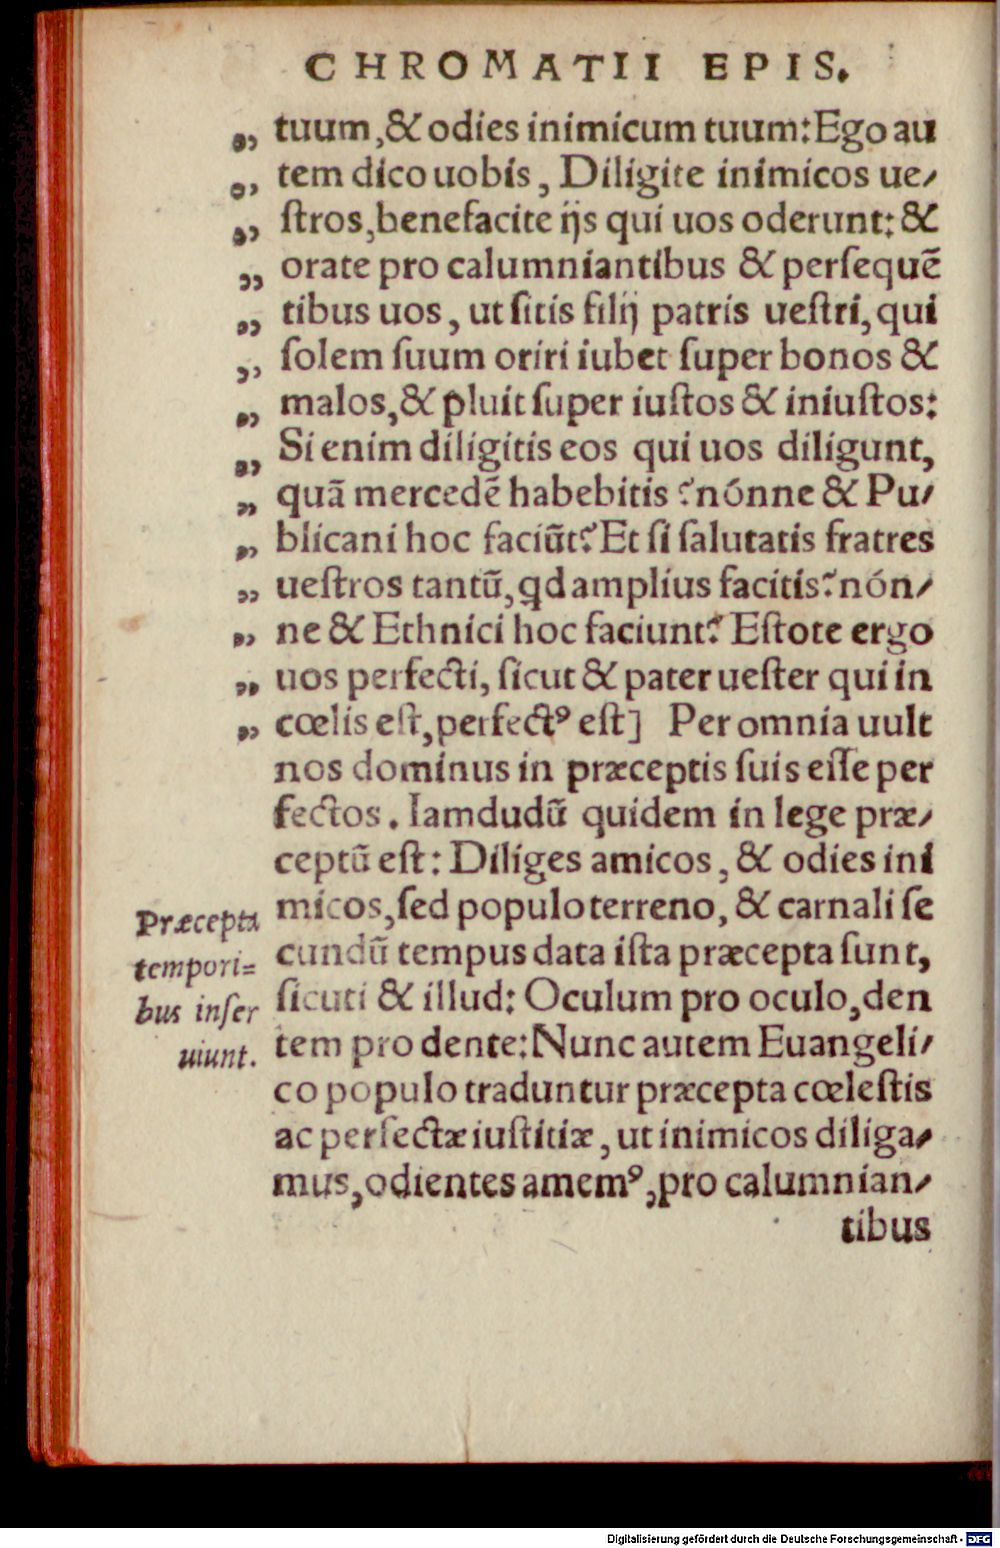 CHROMATII EPIS.
„ tuum, & odies inimicum tuum: Ego au
„ tem dico uobis, Diligite inimicos ue/
„ ſtros, benefacite ijs qui uos oderunt: &
„ orate pro calumniantibus & perſequẽ
„ tibus uos, ut ſitis filij patris ueſtri, qui
„ ſolem ſuum oriri iubet ſuper bonos &
„ malos, & pluit ſuper iuſtos & iniuſtos:
„ Si enim diligitis eos qui uos diligunt,
„ quã mercedẽ habebitis? nónne & Pu/
„ blicani hoc faciũt? Et ſi ſalutatis fratres
„ ueſtros tantũ, qd amplius facitis? nón/
„ ne & Ethnici hoc faciunt? Eſtote ergo
„ uos perfecti, ſicut & pater ueſter qui in
„ cœlis eſt, perfectꝰ eſt] Per omnia uult
nos dominus in præceptis ſuis eſſe per
fectos. Iamdudũ quidem in lege præ/
ceptũ eſt: Diliges amicos, & odies ini
micos, ſed populo terreno, & carnali ſe
cundũ tempus data iſta præcepta ſunt,
ſicuti & illud: Oculum pro oculo, den
tem pro dente: Nunc autem Euangeli/
co populo traduntur præcepta cœleſtis
ac perfectæ iuſtitiæ, ut inimicos diliga/
mus, odientes amemꝰ, pro calumnian/
tibus
Præcepta
tempori=
bus inſer
uiunt.
Digitalisierung gefördert durch die Deutsche Forschungsgemeinschaft - DFG